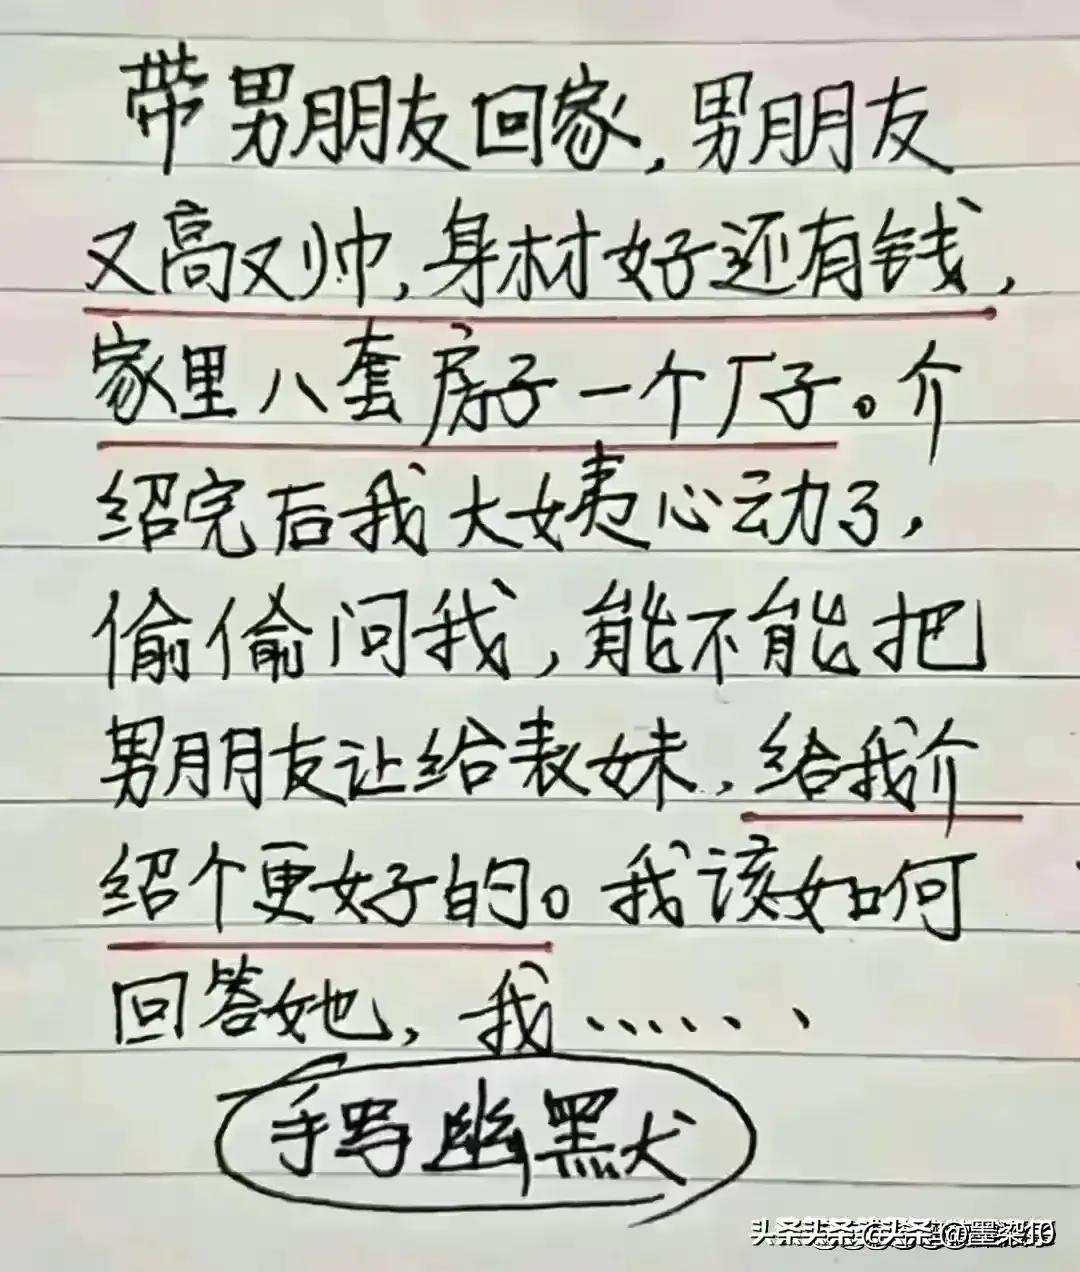 带男朋友回家,男朋友
又高又帅,身材好还有钱,
家里八套房子一个厂子。介
绍完后我大姨心动了,
偷偷问我,能不能把
男朋友让给表妹,给我介
绍个更好的。我该如何
回答她,我......
手写幽默
头条